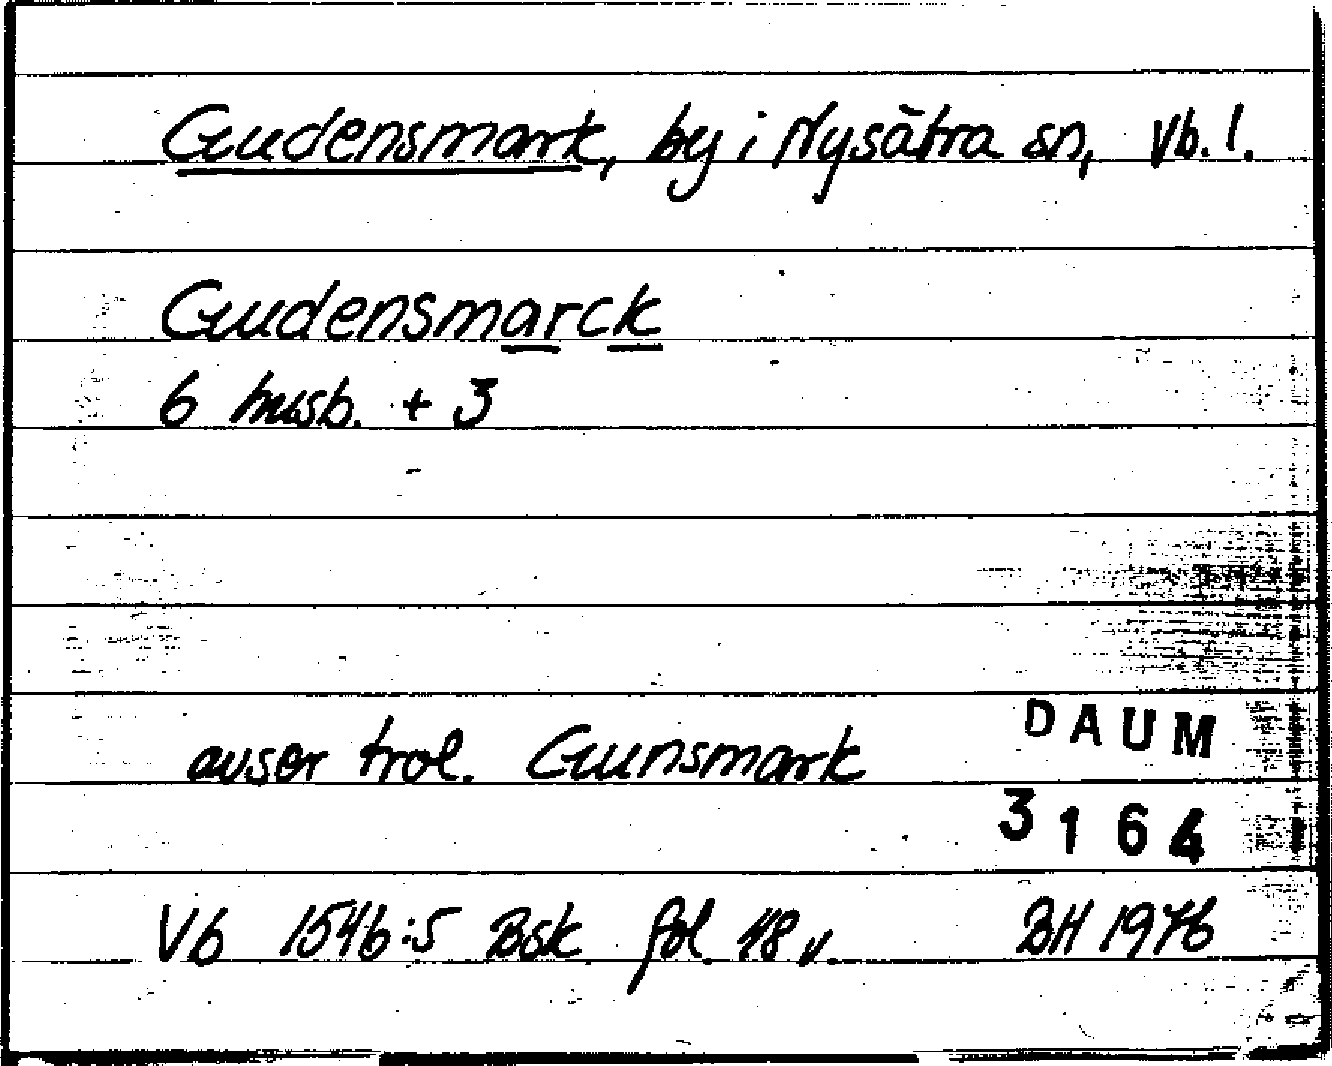 Gudensmark, by i Nysätra sn, Vb. l.
Gudensmarck
6 husb. + 3
avser trol. Gunsmark
DAUM
3164
Vb 1546:5 Bsk fol. 48 v. BH 1976